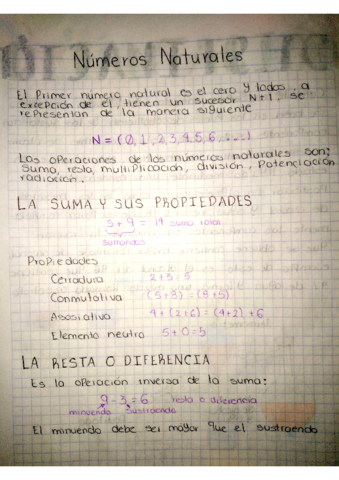 Números Naturales
El Primer numero natural es el cero y todos, a
excepción de el, tienen un sucesor N+1, se
rePresentan de la manera siguiente
N = (0, 1, 2, 3, 4, 5, 6, ...)
Las oPeraciones de los números naturales son:
Suma, resta, multiPlicación, división, Potenciación
radiación.
LA SUMA Y SUS PROPIEDADES
5 + 9 = 14 suma total
Sumandos
ProPiedades
Cerradura 2+3=5
Conmutativa (5+8)=(8+5)
Asosiativa 4+(2+6)=(4+2)+6
Elemento neutro 5+0=5
LA RESTA O DIFERENCIA
Es la oPeración inversa de la suma:
9-3=6 resta o diferencia
minuendo Sustraendo
El minuendo debe ser mayor que el sustraendo